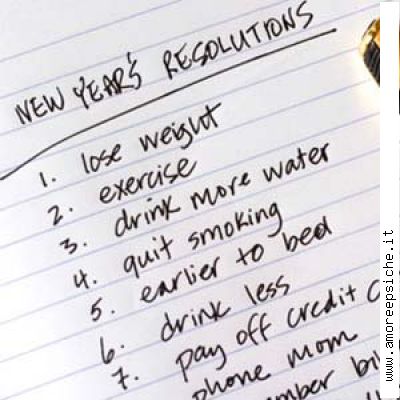 NEW YEAR'S RESOLUTIONS
1. lose weight
2. exercise
3. drink more water
4. quit smoking
5. earlier to bed
6. drink less
7. pay off credit c
phone mom
www.amoreepsiche.it